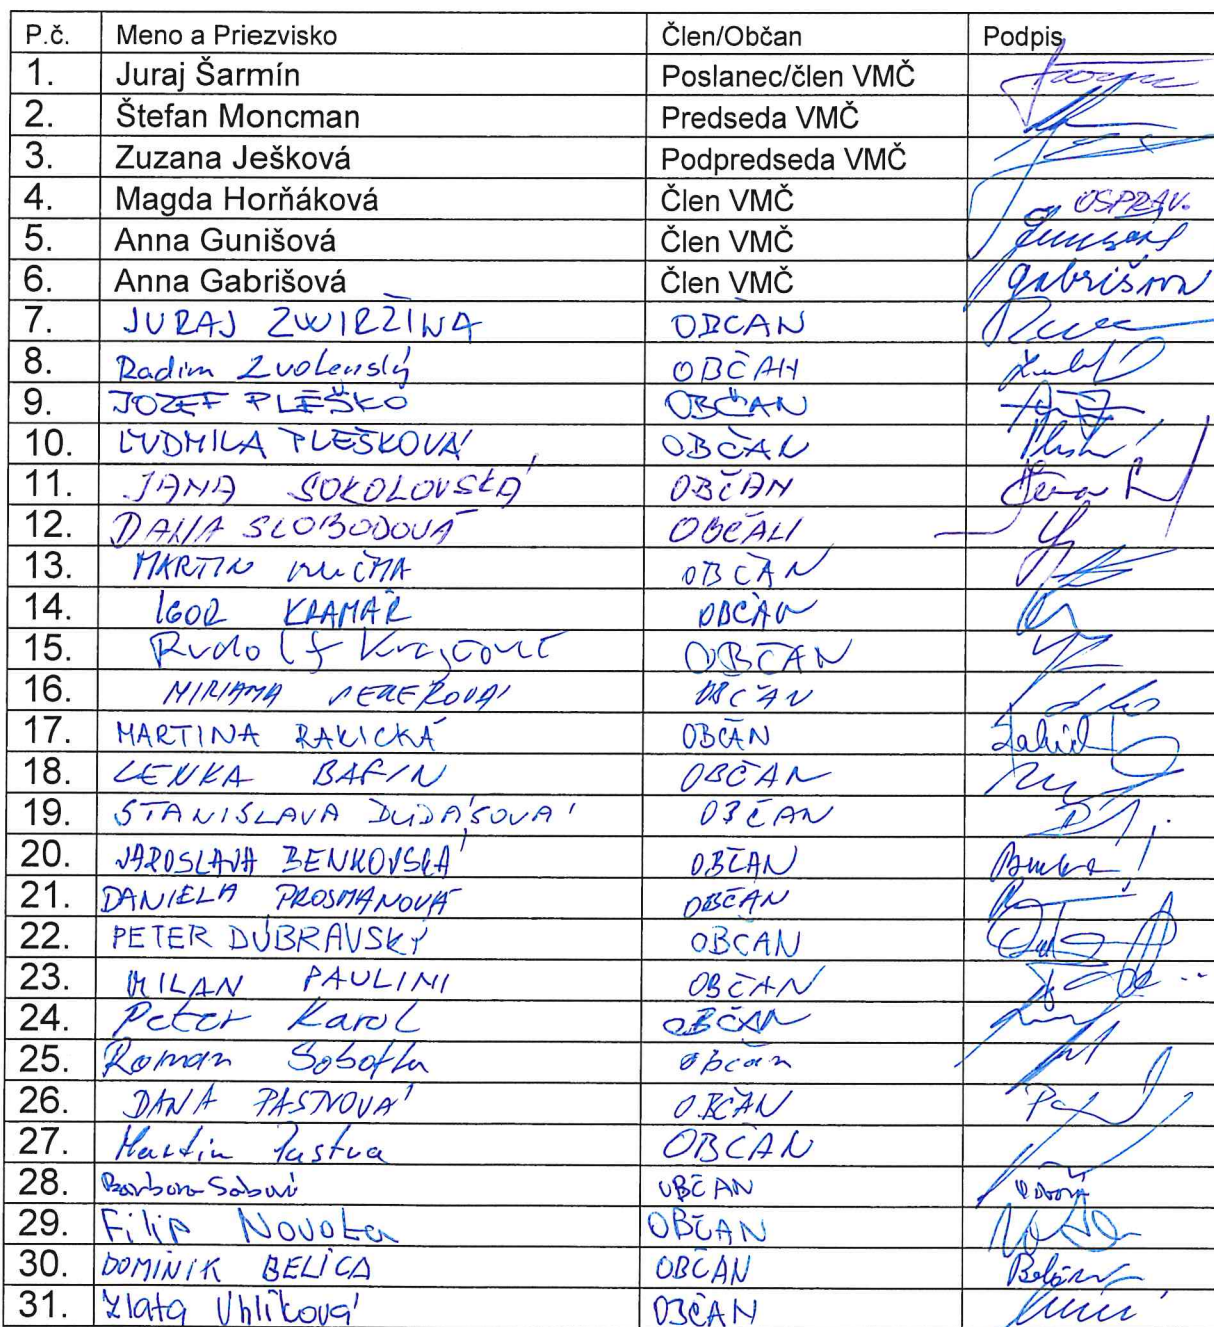 P.č. Meno a Priezvisko Člen/Občan Podpis
1. Juraj Šarmín Poslanec/člen VMČ
2. Štefan Moncman Predseda VMČ
3. Zuzana Ješková Podpredseda VMČ
4. Magda Horňáková Člen VMČ OSPRAV.
5. Anna Gunišová Člen VMČ
6. Anna Gabrišová Člen VMČ
7. JURAJ OBČAN
8. Radim Zvolenský OBČAN
9. JOZEF PLEŠKO OBČAN
10. ĽUDMILA PLEŠKOVÁ OBČAN
11. JANA SOKOLOVSKÁ OBČAN
12. DANA SLOBODOVÁ OBČAN
13. MARTIN OBČAN
14. IGOR KRAMÁR OBČAN
15. Rudolf Krajčovič OBČAN
16. MIRIAMA OBČAN
17. MARTINA OBČAN
18. LENKA BAFIN OBČAN
19. STANISLAVA DUDÁŠOVÁ OBČAN
20. JAROSLAVA BENKOVSKÁ OBČAN
21. DANIELA PROSMANOVÁ OBČAN
22. PETER DÚBRAVSKÝ OBČAN
23. MILAN PAULINI OBČAN
24. Peter Karol OBČAN
25. Roman Sobotka občan
26. DANA PASTVOVÁ OBČAN
27. Martin Pastva OBČAN
28. Barbora OBČAN
29. Filip Novota OBČAN
30. DOMINIK BELICA OBČAN
31. Zlata Uhlíková OBČAN